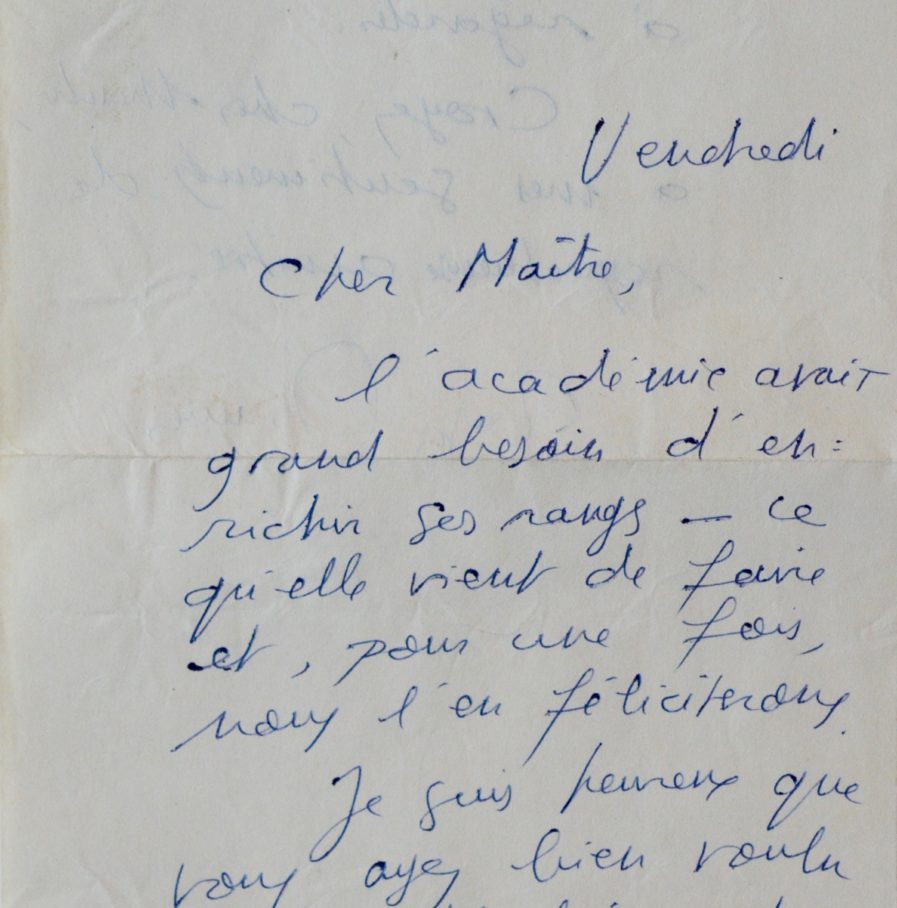 Vendredi
Cher Maître,
l'académie avait
grand besoin d'en=
richir ses rangs — ce
qu'elle vient de faire
et, pour une fois,
nous l'en féliciterons.
Je suis heureux que
vous ayez bien voulu